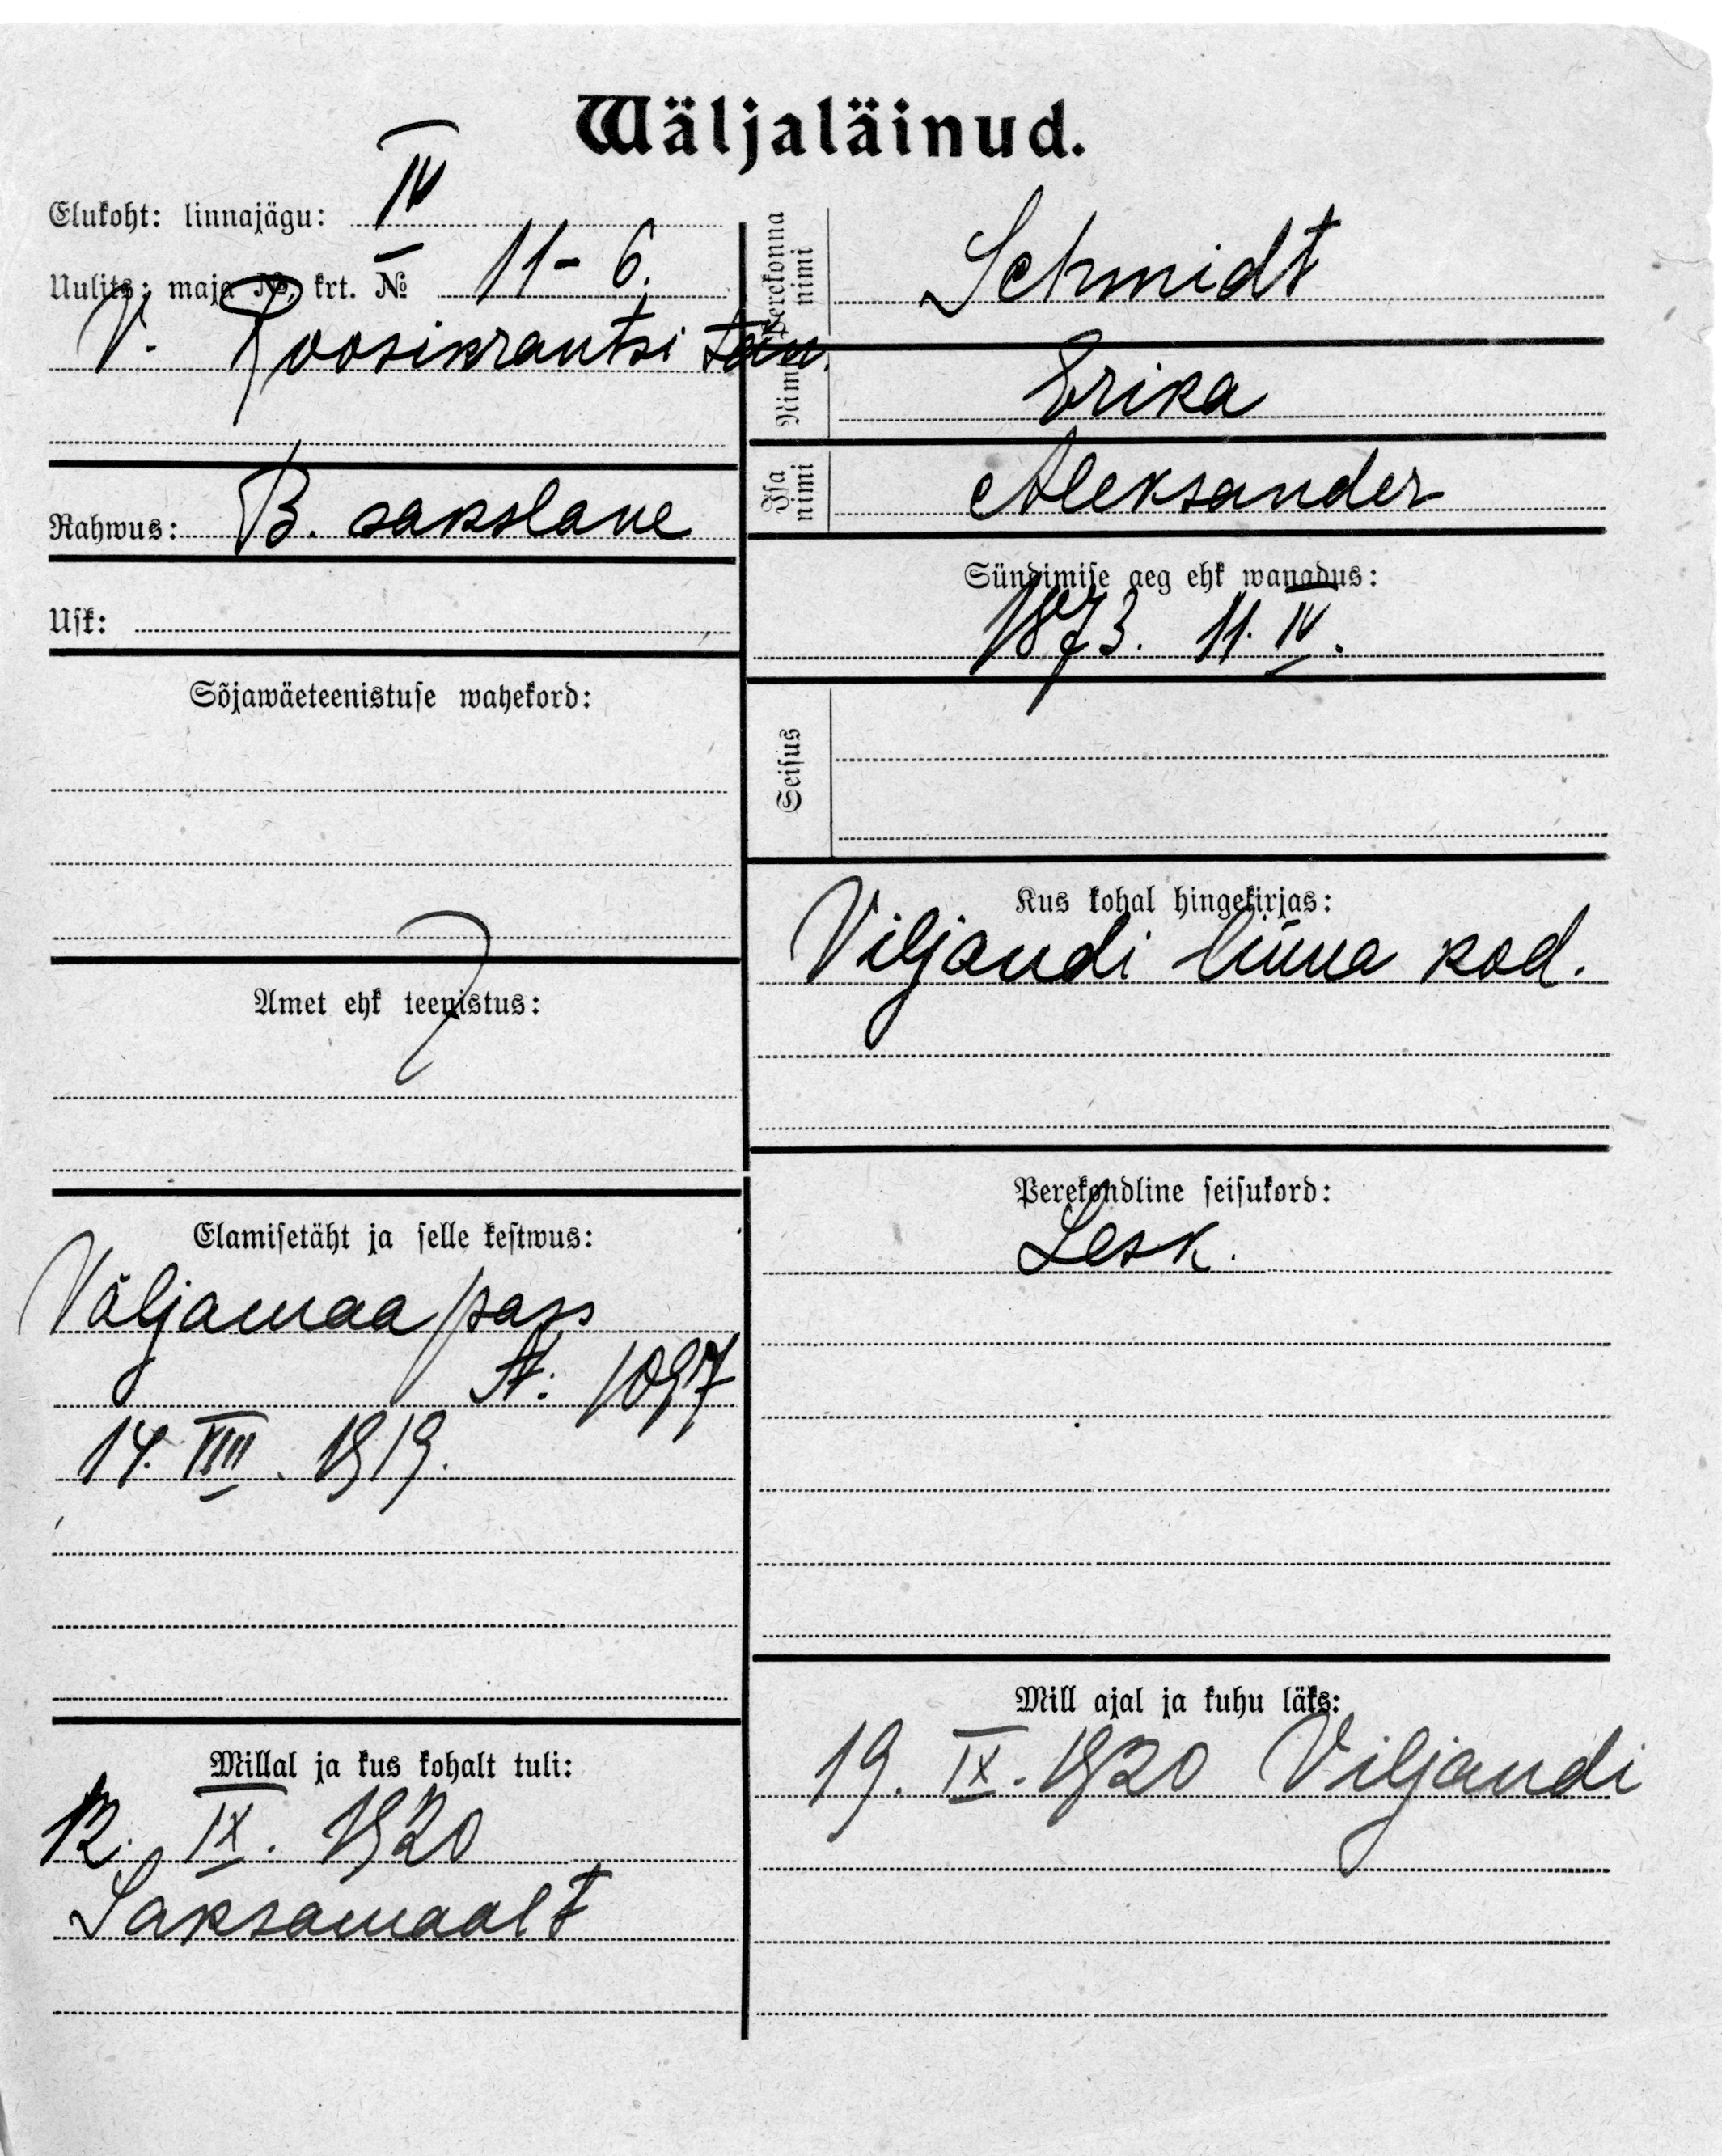 Wäljaläinud.
Elukoht: linnajägu: IV
Uulits: maja №, krt. № 11-6.
V. Roosikrantsi tän.
Rahwus: B. sakslane
Usk:
Sõjawäeteenistuse wahekord:
Amet ehk teenistus:
Elamisetäht ja selle kestwus:
Väljamaa pass
№: 1097
14. VIII. 1919.
Millal ja kus kohalt tuli:
12. IX. 1920
Saksamaalt
Perekonna nimi
Schmidt
Nimi
Erika
Isa nimi
Aleksander
Sündimise aeg ehk wanadus:
1873. 11. IV.
Seisus
Kus kohal hingekirjas:
Viljandi linna kod.
Perekondline seisukord:
Lesk.
Mill ajal ja kuhu läks:
19. IX. 1920 Viljandi